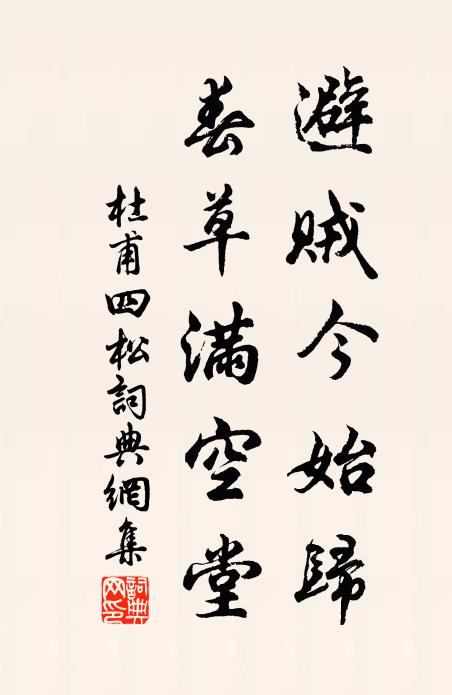 避賊今始歸
春草滿空堂
杜甫四松詞典網集
詞典網印